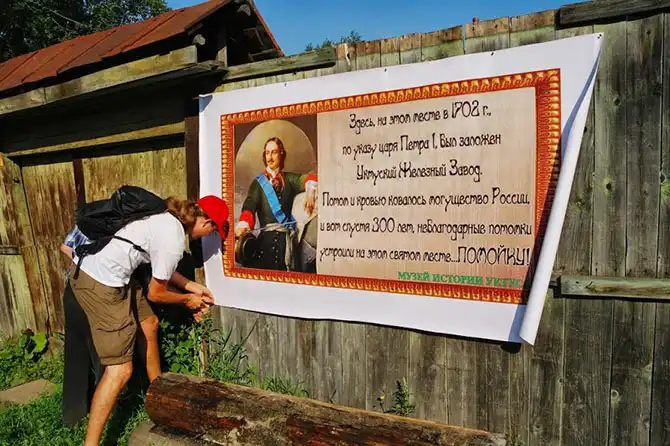 Здесь, на этом месте в 1702 г.,
по указу царя Петра 1, был заложен
Уктуский Железный Завод.
Потом и кровью ковалось могущество России,
и вот спустя 300 лет, неблагодарные потомки
устроили на этом святом месте...ПОМОЙКУ!
МУЗЕЙ ИСТОРИИ УКТУСА